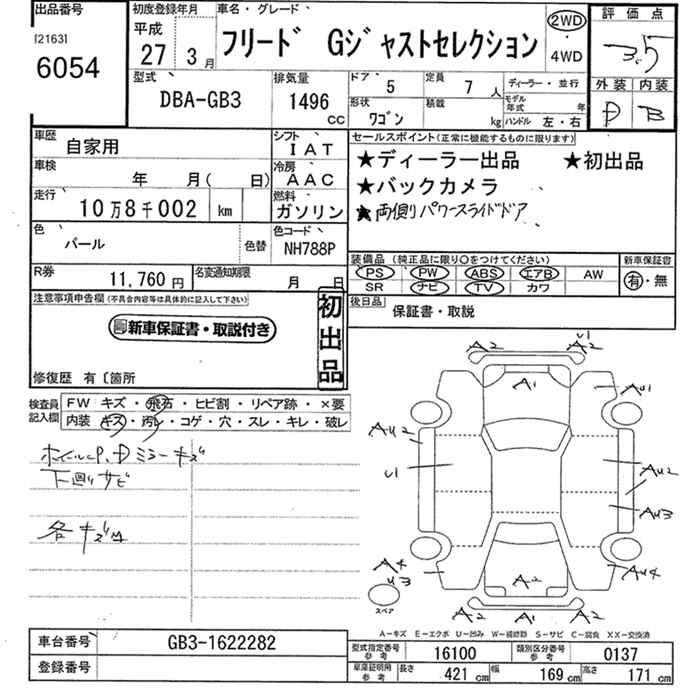 出品番号
[2163]
6054
初度登録年月
平成
27 3月
車名・グレード
フリード Gジャストセレクション
2WD
・
4WD
評価点
3.5
外装 内装
D B
型式
DBA-GB3
排気量
1496
CC
ドア 5
定員 7 人
ディーラー・並行
形状
ワゴン
積載 kg
モデル年式 年
ハンドル 左・右
車歴 自家用
シフト IAT
車検 年 月( 日)
冷房 AAC
走行 10万8千002 km
燃料 ガソリン
色 パール 色替
色コード NH788P
R券 11,760円
名変通知期限 月 日
セールスポイント(正常に機能するものに限ります)
★ディーラー出品 ★初出品
★バックカメラ
★両側パワースライドドア
装備品(純正品に限り○をつけてください)
PS PW ABS エアB AW
SR ナビ TV カワ
新車保証書
有・無
後日品 保証書・取説
注意事項申告欄(不具合内容等は具体的に記入して下さい)
新車保証書・取説付き
初出品
修復歴 有〔箇所
検査員記入欄
FW キズ・飛石・ヒビ割・リペア跡・×要
内装 キズ・汚レ・コゲ・穴・スレ・キレ・破レ
ホイルCP、Dミラーキズ
下廻りサビ
各キズ凹
A2 A2 U1
A1 AU1
AU2
U1 AU2
AU3
A4 U3 AU4
A2
スペア
A2 A1 A2
A-キズ E-エクボ U-凹み W-補修跡 S-サビ C-腐食 XX-交換済
車台番号 GB3-1622282
登録番号
型式指定番号 参考 16100
類別区分番号 参考 0137
車庫証明用 参考 長さ 421 cm 幅 169 cm 高さ 171 cm